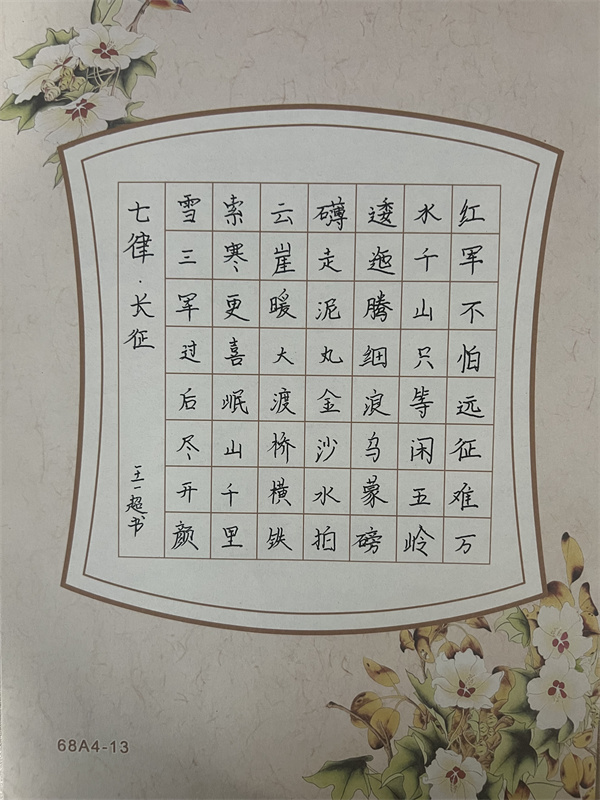 红军不怕远征难万
水千山只等闲五岭
逶迤腾细浪乌蒙磅
礴走泥丸金沙水拍
云崖暖大渡桥横铁
索寒更喜岷山千里
雪三军过后尽开颜
七律·长征 王一超书
68A4-13